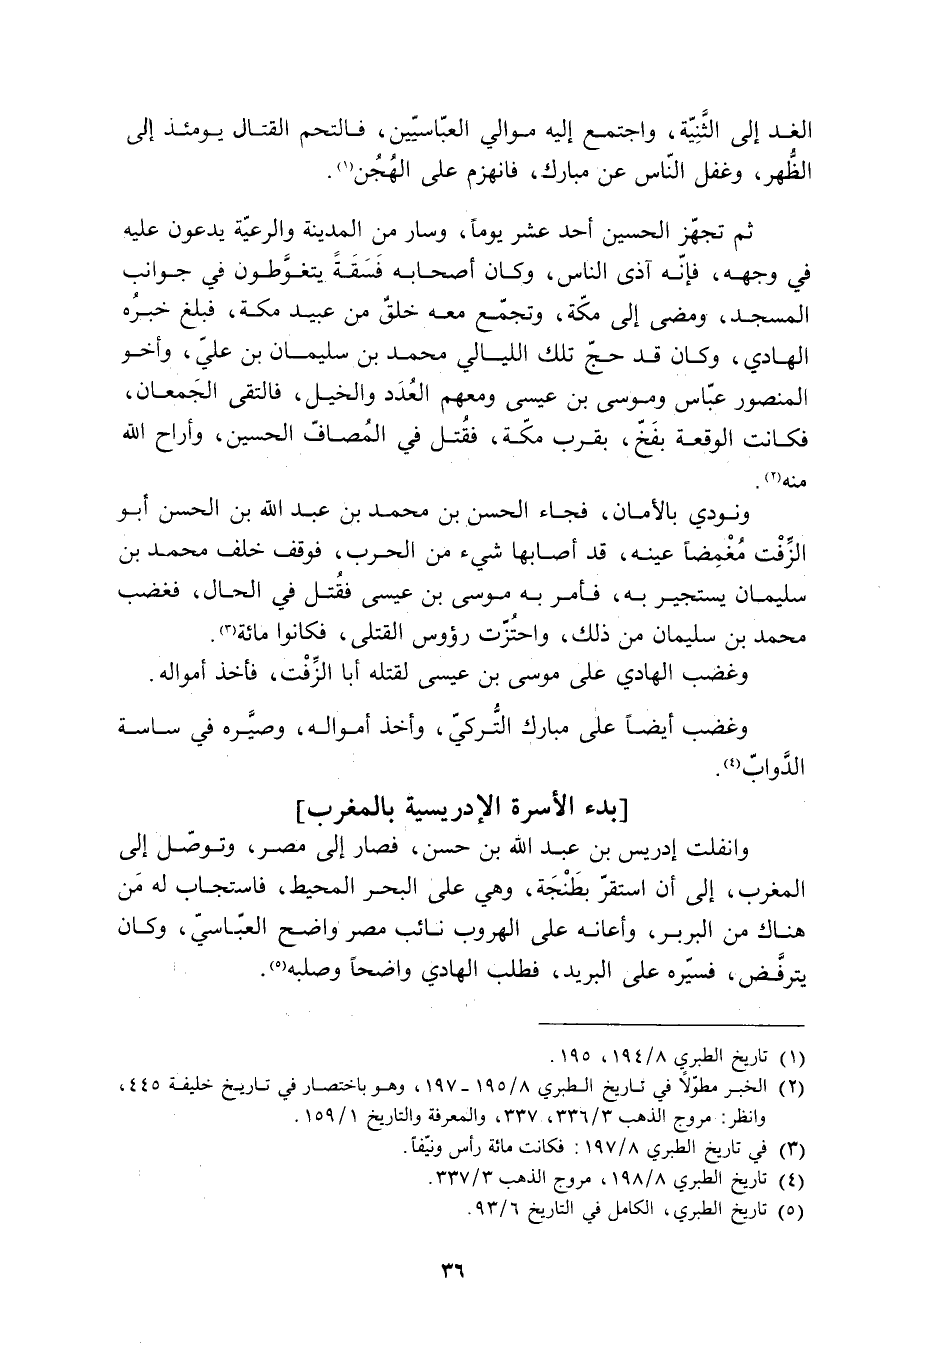 الغد إلى الثَّنِيّة، واجتمع إليه موالي العبّاسيّين، فالتحم القتال يومئذ إلى
الظُّهر، وغفل النّاس عن مبارك، فانهزم على الهُجُن(١).
ثم تجهّز الحسين أحد عشر يوماً، وسار من المدينة والرعيّة يدعون عليه
في وجهه، فإنّه آذى الناس، وكان أصحابه فَسَقَةً يتغوَّطون في جوانب
المسجد، ومضى إلى مكّة، وتجمّع معه خلقٌ من عبيد مكة، فبلغ خبرُه
الهادي، وكان قد حجّ تلك الليالي محمد بن سليمان بن عليّ، وأخو
المنصور عبّاس وموسى بن عيسى ومعهم العُدَد والخيل، فالتقى الجَمعان،
فكانت الوقعة بفَخّ، بقرب مكّة، فقُتل في المُصافّ الحسين، وأراح الله
منه(٢).
ونودي بالأمان، فجاء الحسن بن محمد بن عبد الله بن الحسن أبو
الزِّفْت مُغْمِضاً عينه، قد أصابها شيء من الحرب، فوقف خلف محمد بن
سليمان يستجير به، فأمر به موسى بن عيسى فقُتل في الحال، فغضب
محمد بن سليمان من ذلك، واحتُزّت رؤوس القتلى، فكانوا مائة(٣).
وغضب الهادي على موسى بن عيسى لقتله أبا الزِّفْت، فأخذ أمواله.
وغضب أيضاً على مبارك التُّركيّ، وأخذ أمواله، وصيَّره في ساسة
الدَّوابّ(٤).
[بدء الأسرة الإدريسية بالمغرب]
وانفلت إدريس بن عبد الله بن حسن، فصار إلى مصر، وتوصّل إلى
المغرب، إلى أن استقرّ بطَنْجَة، وهي على البحر المحيط، فاستجاب له مَن
هناك من البربر، وأعانه على الهروب نائب مصر واضح العبّاسيّ، وكان
يترفَّض، فسيّره على البريد، فطلب الهادي واضحاً وصلبه(٥).
(١) تاريخ الطبري ١٩٤/٨، ١٩٥.
(٢) الخبر مطوّلاً في تاريخ الطبري ١٩٥/٨ ـ ١٩٧، وهو باختصار في تاريخ خليفة ٤٤٥،
وانظر: مروج الذهب ٣٣٦/٣، ٣٣٧، والمعرفة والتاريخ ١٥٩/١.
(٣) في تاريخ الطبري ١٩٧/٨: فكانت مائة رأس ونيّفاً.
(٤) تاريخ الطبري ١٩٨/٨، مروج الذهب ٣٣٧/٣.
(٥) تاريخ الطبري، الكامل في التاريخ ٩٣/٦.
٣٦